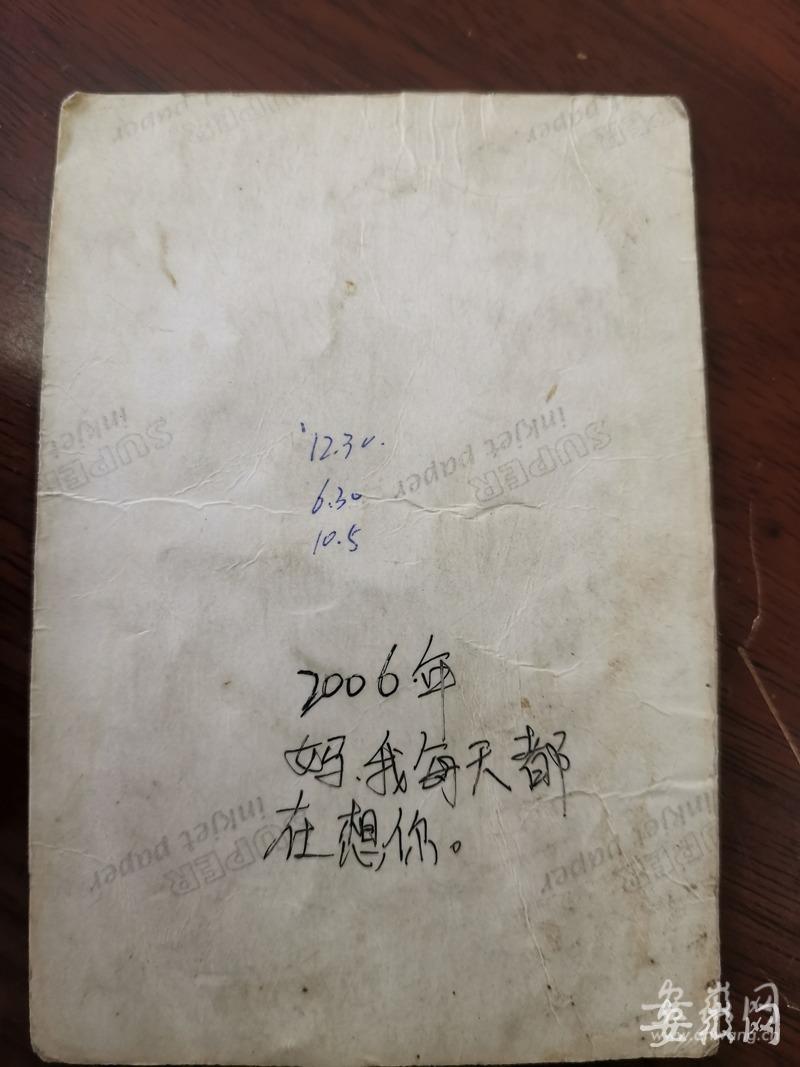 SUPER
inkjet paper
SUPER
inkjet
SUPER
inkjet paper
12.30.
6.30
10.5
2006年
妈、我每天都
在想你。
SUPER
inkjet paper
SUPER
inkjet paper
安徽网